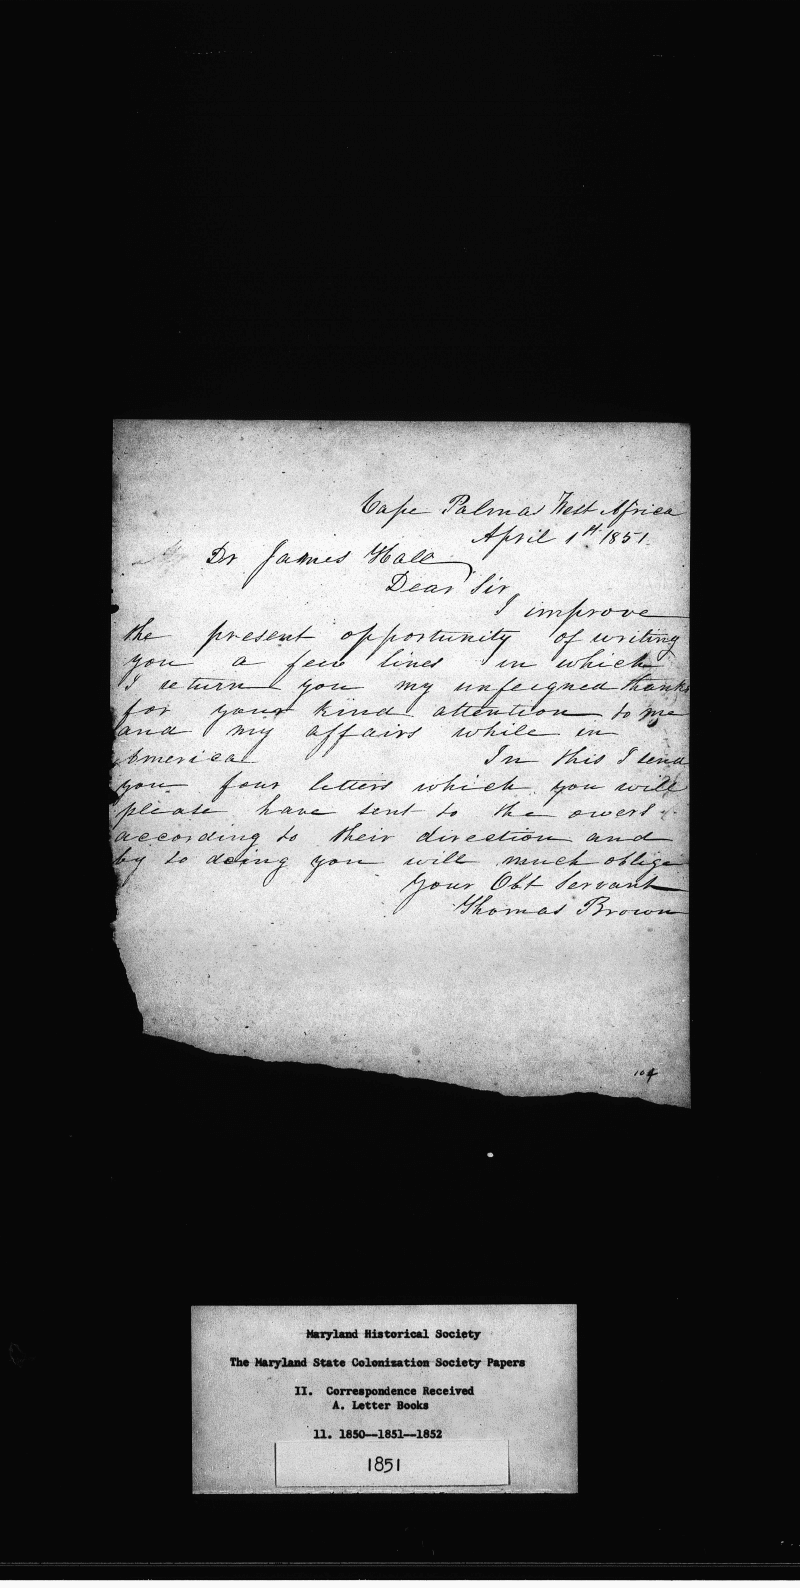 Cape Palmas West Africa
April 1st 1851.
Dr James Hall
Dear Sir
I improve
the present opportunity of writing
you a few lines in which
I return you my unfeigned thanks
for your kind attention to me
and my affairs while in
America. In this I send
you four letters which you will
please have sent to the owers
according to their direction and
by so doing you will much oblige
Your Obt Servant
Thomas Brown
104
Maryland Historical Society
The Maryland State Colonization Society Papers
II. Correspondence Received
A. Letter Books
11. 1850--1851--1852
1851